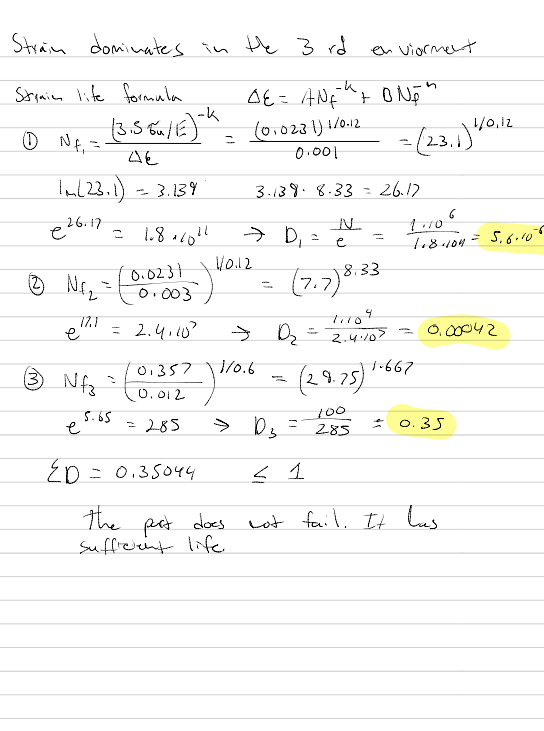 Strain dominates in the 3 rd enviorment
Strain life formula Δε = ANf^-k + DNf^-n
① Nf₁ = (3.5σu/E)^-k / Δε = (0.0231)^1/0.12 / 0.001 = (23.1)^1/0.12
ln(23.1) = 3.139 3.139 · 8.33 = 26.17
e^26.17 = 1.8·10^11 → D₁ = N/e = 1·10^6 / 1.8·10^11 = 5.6·10^-6
② Nf₂ = (0.0231/0.003)^1/0.12 = (7.7)^8.33
e^17.1 = 2.4·10^7 → D₂ = 1·10^4 / 2.4·10^7 = 0.00042
③ Nf₃ = (0.357/0.012)^1/0.6 = (29.75)^1.667
e^5.65 = 285 → D₃ = 100/285 = 0.35
ΣD = 0.35044 ≤ 1
The part does not fail. It has
sufficient life.